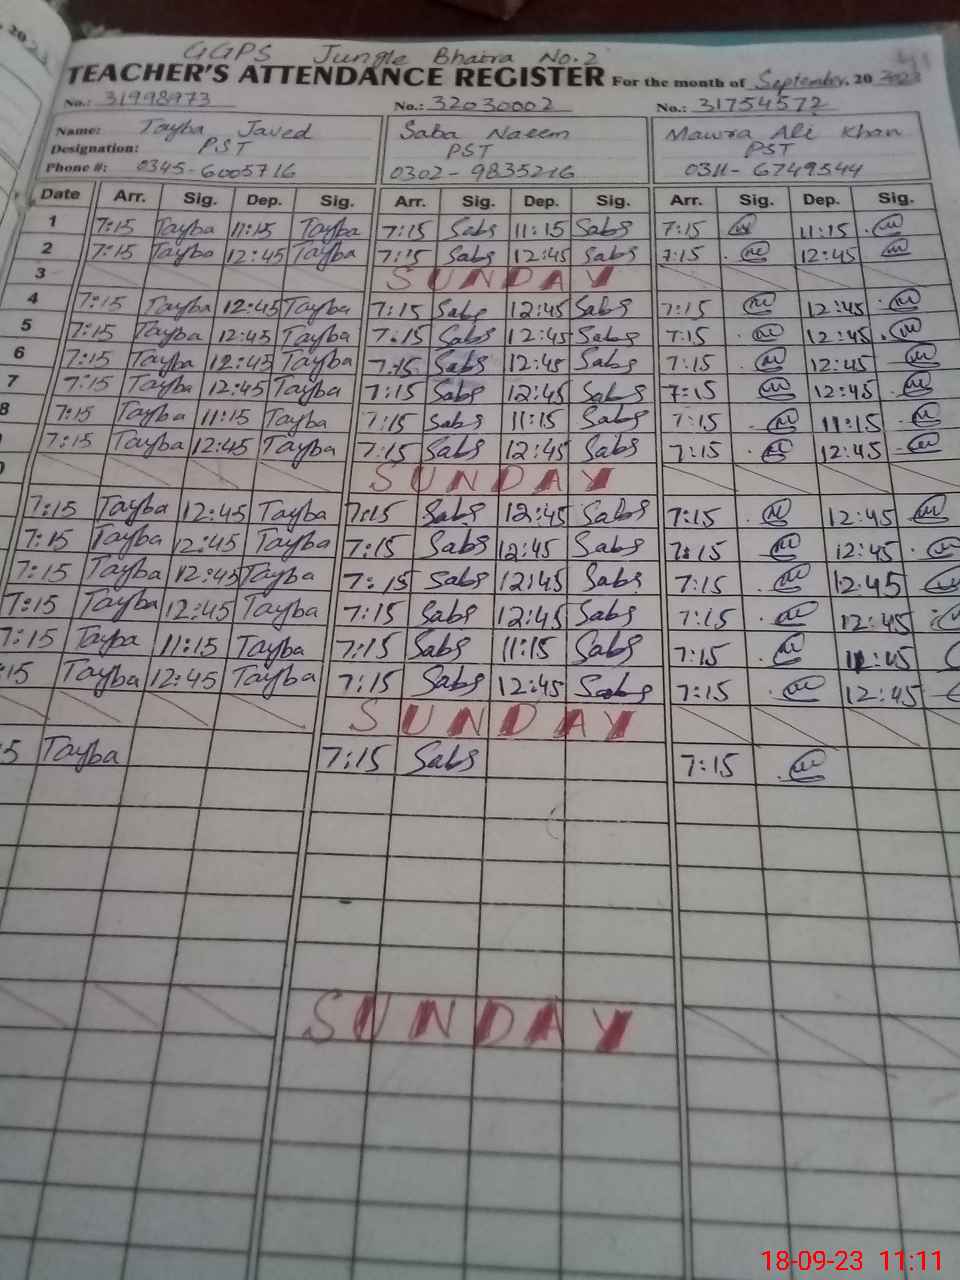 GGPS Jungle Bhatra No.2
TEACHER'S ATTENDANCE REGISTER For the month of September. 20 2023
No.: 31998973 No.: 32030002 No.: 31754572
Name: Tayba Javed Saba Naeem Mawra Ali Khan
Designation: PST PST PST
Phone #: 0345-6005716 0302-9835216 0311-6749544
Date Arr. Sig. Dep. Sig. Arr. Sig. Dep. Sig. Arr. Sig. Dep. Sig.
1 7:15 Tayba 11:15 Tayba 7:15 Sabs 11:15 Sabs 7:15 11:15
2 7:15 Tayba 12:45 Tayba 7:15 Sabs 12:45 Sabs 7:15 12:45
3 SUNDAY
4 7:15 Tayba 12:45 Tayba 7:15 Sabs 12:45 Sabs 7:15 12:45
5 7:15 Tayba 12:45 Tayba 7:15 Sabs 12:45 Sabs 7:15 12:45
6 7:15 Tayba 12:45 Tayba 7:15 Sabs 12:45 Sabs 7:15 12:45
7 7:15 Tayba 12:45 Tayba 7:15 Sabs 12:45 Sabs 7:15 12:45
8 7:15 Tayba 11:15 Tayba 7:15 Sabs 11:15 Sabs 7:15 11:15
7:15 Tayba 12:45 Tayba 7:15 Sabs 12:45 Sabs 7:15 12:45
SUNDAY
7:15 Tayba 12:45 Tayba 7:15 Sabs 12:45 Sabs 7:15 12:45
7:15 Tayba 12:45 Tayba 7:15 Sabs 12:45 Sabs 7:15 12:45
7:15 Tayba 12:45 Tayba 7:15 Sabs 12:45 Sabs 7:15 12:45
7:15 Tayba 12:45 Tayba 7:15 Sabs 12:45 Sabs 7:15 12:45
7:15 Tayba 11:15 Tayba 7:15 Sabs 11:15 Sabs 7:15
:15 Tayba 12:45 Tayba 7:15 Sabs 12:45 Sabs 7:15 12:45
SUNDAY
5 Tayba 7:15 Sabs 7:15
SUNDAY
18-09-23 11:11